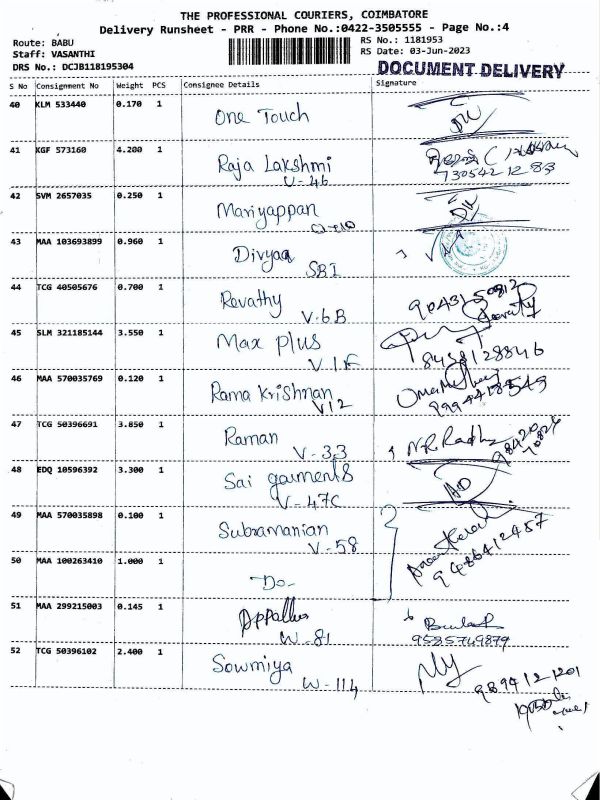 THE PROFESSIONAL COURIERS, COIMBATORE
Delivery Runsheet - PRR - Phone No.:0422-3505555 - Page No.:4
Route: BABU
Staff: VASANTHI
DRS No.: DCJB118195304
RS No.: 1181953
RS Date: 03-Jun-2023
DOCUMENT DELIVERY
S No Consignment No Weight PCS Consignee Details Signature
40 KLM 533440 0.170 1 One Touch
41 KGF 573160 4.200 1 Raja Lakshmi
V-46 730542 12 83
42 SVM 2657035 0.250 1 Mariyappan
43 MAA 103693899 0.960 1 Divyaa
SBI
44 TCG 40505676 0.700 1 Revathy
V-6B 9043150812 Revathy
45 SLM 321185144 3.550 1 Max plus
V-1F 8438128846
46 MAA 570035769 0.120 1 Rama Krishnan
V12
47 TCG 50396691 3.850 1 Raman
V-33 N.R. Radha 98420 70826
48 EDQ 10596392 3.300 1 Sai garments
V-47C
49 MAA 570035898 0.100 1 Subramanian
V-58 9486412457
50 MAA 100263410 1.000 1 -Do-
51 MAA 299215003 0.145 1
W-81 9585749879
52 TCG 50396102 2.400 1 Sowmiya
W-114 9894121201